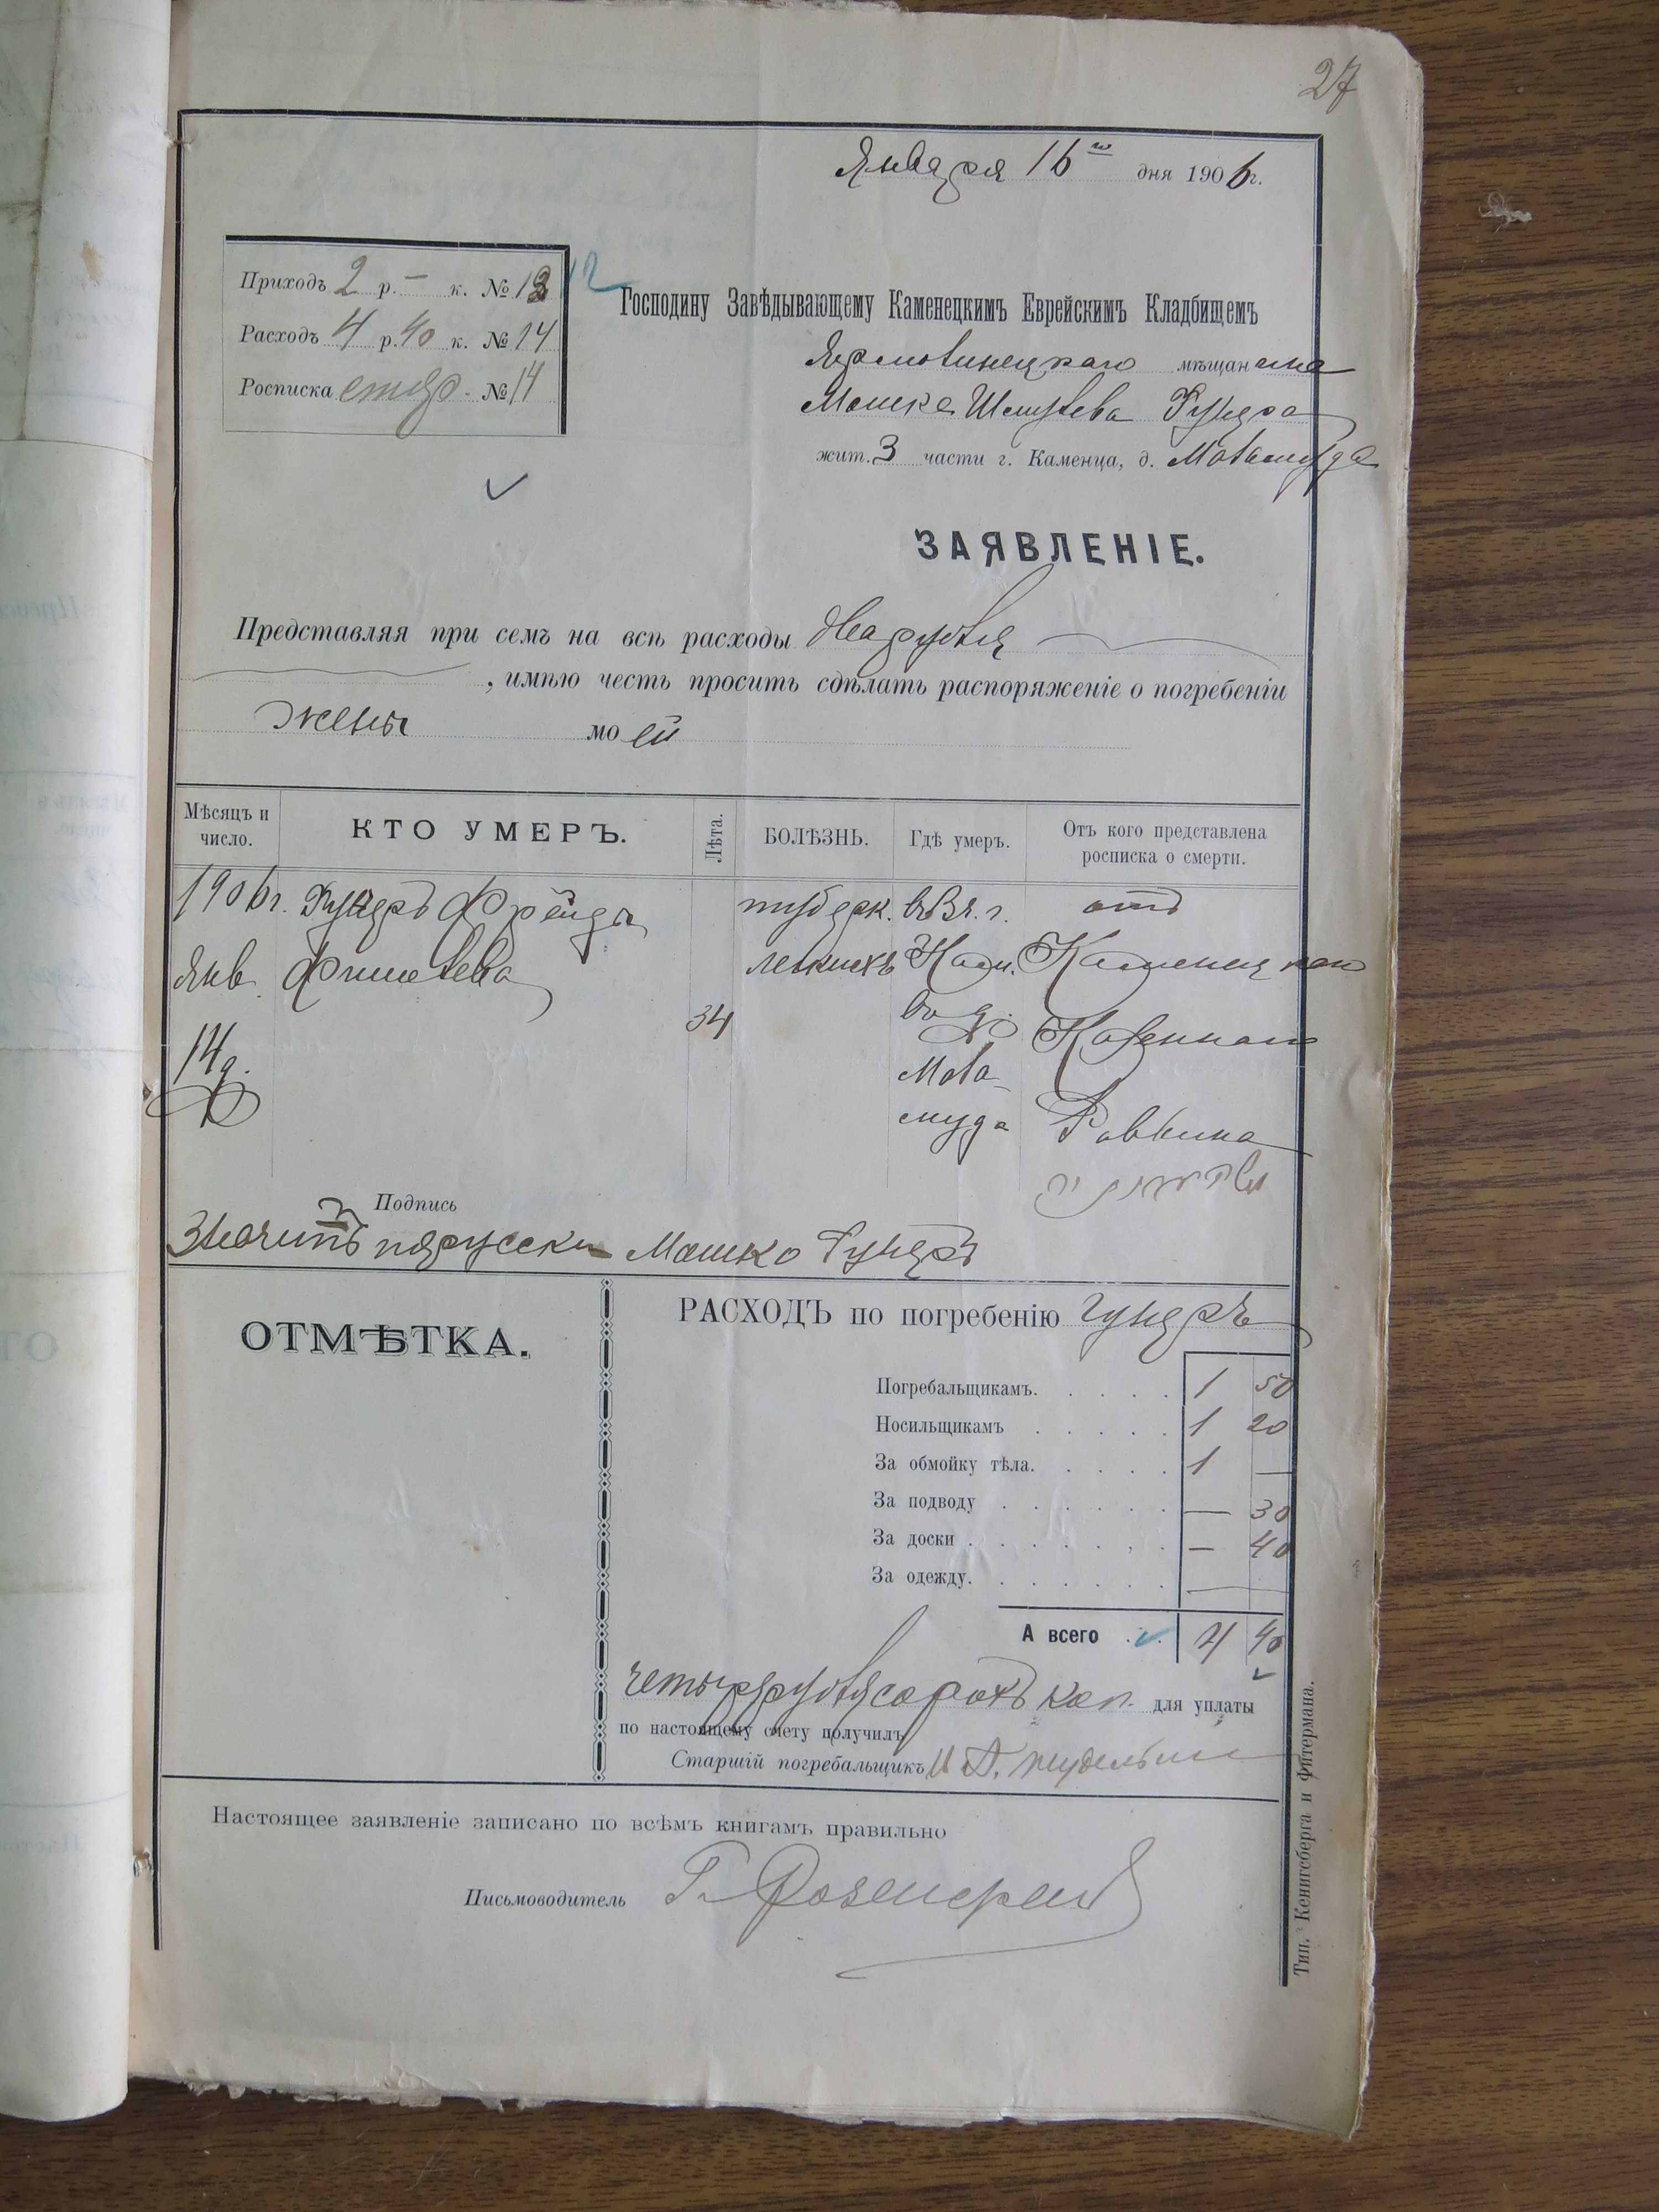 27
Января 16го дня 1906г.
Приходъ 2 р. – к. № 13
12
Расходъ 4 р. 40 к. № 14
Росписка стар. № 14
Господину Завѣдывающему Каменецкимъ Еврейскимъ Кладбищемъ
Ярмолинецкаго мѣщанина
Мошка Шмулева Гунера
жит. 3 части г. Каменца, д.
ЗАЯВЛЕНІЕ.
Представляя при семъ на всѣ расходы два рубля
, имѣю честь просить сдѣлать распоряженіе о погребеніи
жены моей
Мѣсяцъ и число.
КТО УМЕРЪ.
Лѣта.
БОЛѢЗНЬ.
Гдѣ умеръ.
Отъ кого представлена росписка о смерти.
1906г. Гунеръ Фрейда туберк. въ 3 ч. г. отъ
Янв. Фишелева легкихъ Кам. Каменецкаго
34 во д. Казеннаго
14 д. Мала-
муда Раввина
Подпись
Значитъ порусски Мошко Гунеръ
ОТМѢТКА.
РАСХОДЪ по погребенію Гунеръ
Погребальщикамъ. 1 50
Носильщикамъ 1 20
За обмойку тѣла. 1 —
За подводу — 30
За доски — 40
За одежду. —
А всего 4 40
четыре рубля сорокъ коп. для уплаты
по настоящему счету получилъ
Старшій погребальщикъ
Настоящее заявленіе записано по всѣмъ книгамъ правильно
Письмоводитель
Тип. Кенигсберга и Фитермана.